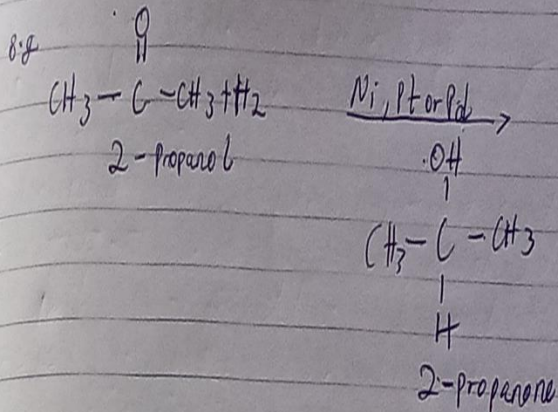 e.g
O
||
CH3 - C - CH3 + H2 Ni, Pt or Pd
2-propanol
OH
|
CH3 - C - CH3
|
H
2-propanone